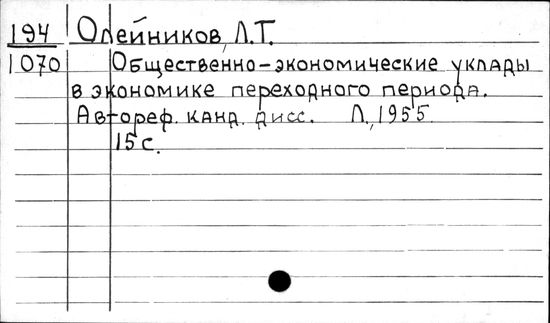 194 Олейников, Л.Т.
1070 Общественно-экономические уклады
в экономике переходного периода.
Автореф. канд. дисс. Л., 1955
15 с.